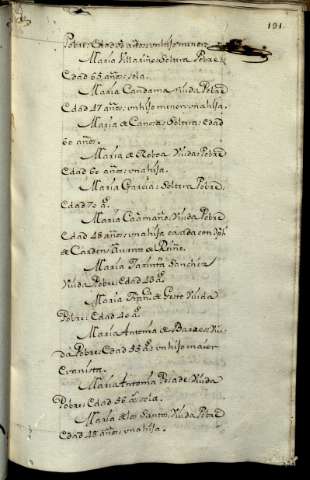 191
Pobre: Edad 56 años: un hijo menor
María Villariño: Soltera Pobre:
Edad 65 años: sola.
María Caudama viuda Pobre
Edad 47 años, un hijo menor una hija.
María de Canosa: Soltera: edad
60 años.
María de Roboa Viuda: Pobre
Edad 60 años: una hija.
María García: Soltera Pobre:
Edad 70 a.
María Caamaño, Viuda Pobre
Edad 48 años: una hija casada con
de Carden,
María Jacinta Sanchez
Viuda Pobre: Edad 40 a.
María de Groto Viuda
Pobre: Edad 40 a.
María Antonia de Bardeos Viu-
da Pobre: Edad 55 a: un hijo maior
María Antonia Viuda
Pobre: Edad 56 a. sola.
María de los Santos, Viuda Pobre
Edad 48 años: una hija.